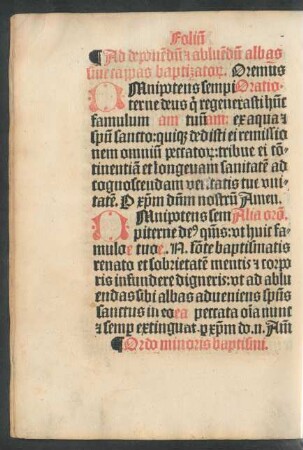 Foliũ
¶Ad deponẽdũ ⁊ abluẽdũ albas
siue cappas baptizatoꝝ. Oremus
OMnipotens sempi Oratio.
terne deus q̃ regenerasti hũc
famulum am tuũ am: ex aqua ⁊
spũ sancto: quiqꝫ dedisti ei remissio
nem omniũ peccatoꝝ: tribue ei cõ
tinentiã et longeuam sanitatẽ ad
cognoscendam veritatis tue vni
tatẽ. P xp̃m dñm nostrũ Amen.
OMnipotens sem Alia orõ.
piterne deꝰ q̃s: vt huic fa
mulo e tuo e. N. fõte baptismatis
renato et sobrietatẽ mentis ⁊ corpo
ris infundere digneris: vt ad ablu
endas sibi albas adueniens spũs
sanctus in eo ea peccata oĩa nunc
⁊ semꝑ extinguat. ꝑ xp̃m do. n. Am̃
¶Ordo minoris baptismi.